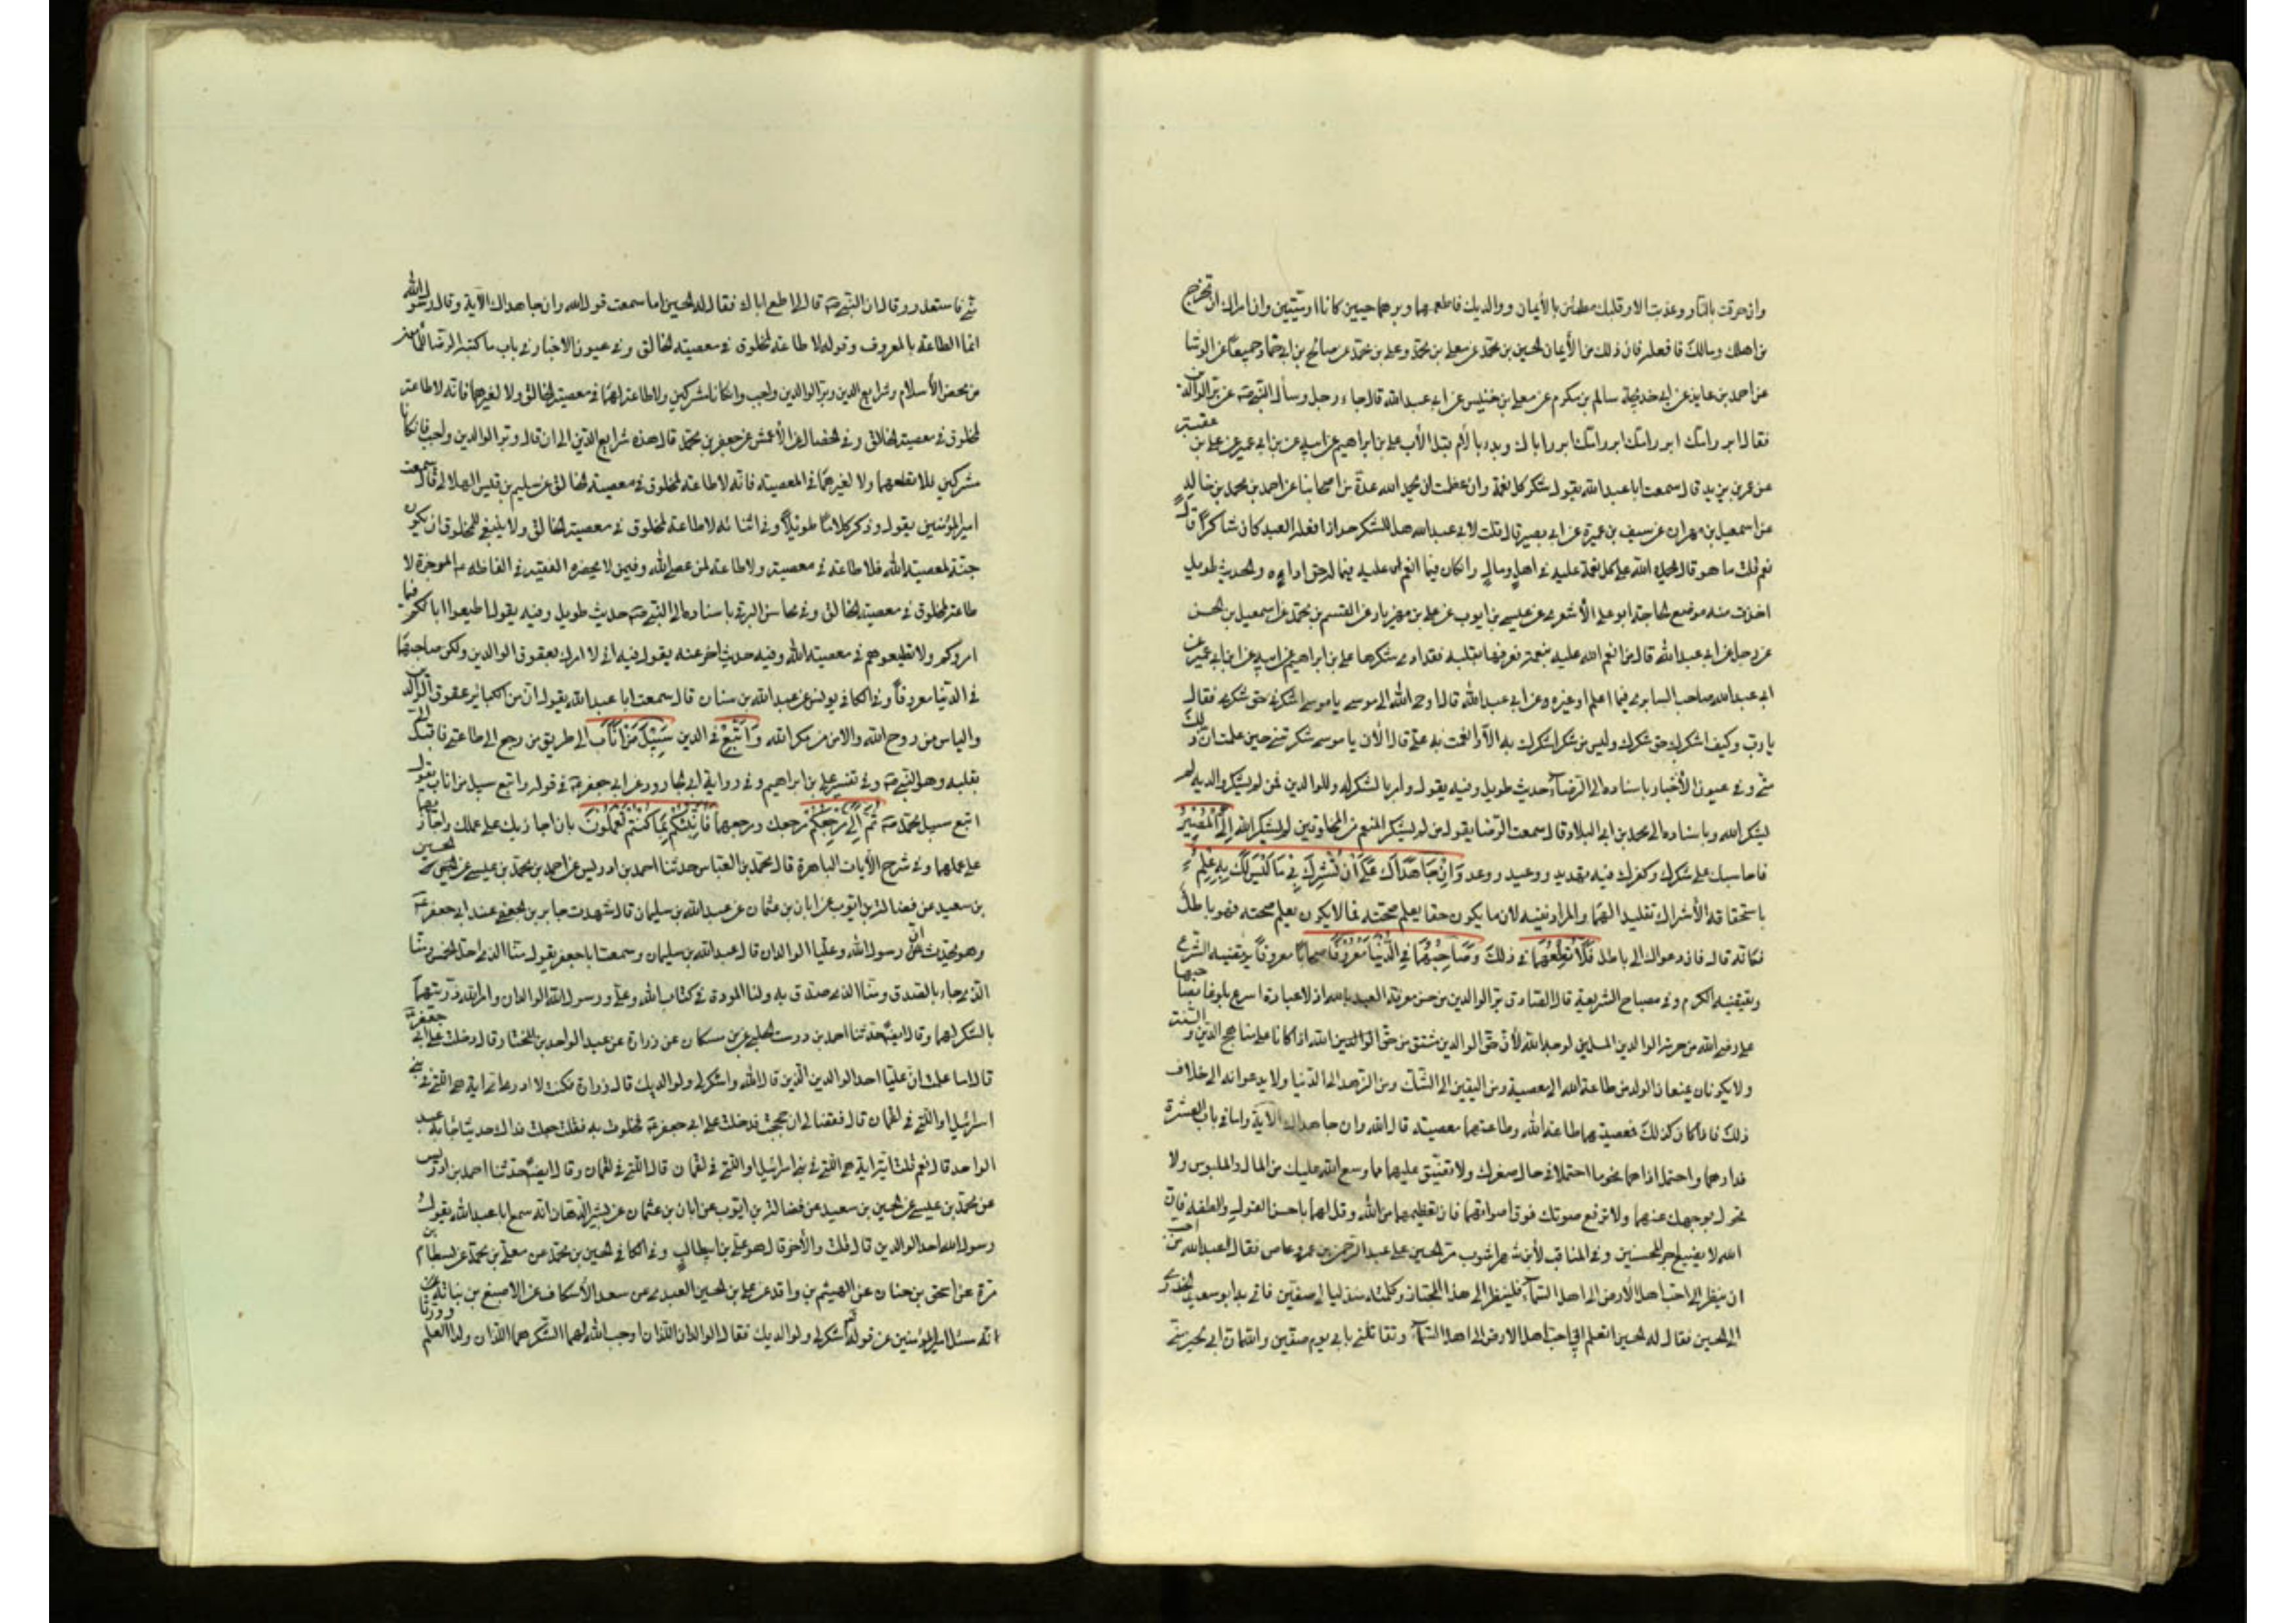 وان حرقت بالنار وعذبت الا وقلبك مطمئن بالأيمان ووالديك فاطعهما وبرهما حيين كانا او ميتين وان امراك ان تخرج
من اهلك ومالك فافعل فان ذلك من الأيمان الحسين بن محمد عن معلى بن محمد وعلى بن محمد عن صالح بن ابى حماد جميعا عن الوشا
عن احمد بن عايذ عن ابى خديجة سالم بن مكرم عن معلى بن خنيس عن ابى عبدالله قال جاء رجل وسأل النبى صه عن بر الوالدين
فقال ابرر امك ابرر امك ابرر امك ابرر اباك وبدء بالأم قبل الأب على بن ابراهيم عن ابيه عن بن ابى عمير عن على بن عقبة
عن عمر بن يزيد قال سمعت ابا عبدالله يقول شكر كل نعمة وان عظمت ان تحمد الله عدة من اصحابنا عن احمد بن محمد بن خالد
عن اسمعيل بن مهران عن سيف بن عميرة عن ابى بصير قال قلت لابى عبدالله هل للشكر حد اذا فعله العبد كان شاكرا قال
نعم قلت ما هو قال يحمد الله على كل نعمة عليه فى اهل ومال وان كان فيما انعم الله عليه فيما له حق اداه والحديث طويل
اخذت منه موضع الحاجة ابو على الأشعرى عن عيسى بن ايوب عن على بن مهزيار عن القسم بن محمد عن اسمعيل بن الحسن
عن رجل عن ابى عبدالله قال من انعم الله عليه بنعمة فعرفها بقلبه فقد ادى شكرها على بن ابراهيم عن ابيه عن ابن ابى عمير عن
ابى عبدالله صاحب السابرى فيما اعلم او غيره وعن ابى عبدالله قال اوحى الله الى موسى ياموسى اشكرنى حق شكرى فقال
يا رب وكيف اشكرك حق شكرك وليس من شكر اشكرك به الا وانعمت به على قال الأن ياموسى شكرتنى حين علمت ان ذلك
منى وفى عيون الأخبار باسناده الى الرضا حديث طويل وفيه يقول وامر بالشكر له وللوالدين فمن لم يشكر والديه لم
يشكر الله وباسناده الى محمد بن ابى البلاد قال سمعت الرضا يقول من لم يشكر المنعم من المخلوقين لم يشكر الله الى المصير
فاحاسبك على شكرك وكفرك فيه تهديد ووعيد ووعد وَاِنْ جَاهَدَاكَ عَلى اَنْ تُشْرِكَ بِي مَا لَيْسَ لَكَ بِهِ عِلْمٌ
باستحقاقه الأشراك تقليدا لهما والمراد نفيه لان ما يكون حقا يعلم صحته فما لا يكون يعلم صحته فهو باطل
فكانه قال فان دعواك الى باطل فَلا تُطِعْهُمَا فى ذلك وَصَاحِبْهُمَا فِي الدُّنْيَا مَعْرُوفًا صحابا معروفا يرتضيه الشرع
ويقتضيه الكرم وفى مصباح الشريعة قال الصادق بر الوالدين من حسن معرفة العبد بالله اذ لا عبادة اسرع بلوغا بصاحبها
على رضى الله من حرمة الوالدين المسلمين لوجه الله لأن حق الوالدين مشتق من حق الله اذا كانا على منهاج الدين والسنة
ولا يكونان يمنعان الولد من طاعة الله الى معصية ومن اليقين الى الشك ومن الزهد الى الدنيا ولا يدعوانه الى خلاف
ذلك فاذا كان كذلك فمعصيتهما طاعة الله وطاعتهما معصيته قال الله وان جاهداك الاية واما فى باب العشرة
فدارهما واحتمل اذاهما نحو ما احتملا فى حال صغرك ولا تضيق عليهما مما وسع الله عليك من المال والملبوس ولا
تحول بوجهك عنهما ولا ترفع صوتك فوق اصواتهما فان تعظيمهما من الله وقل لهما باحسن القول والطفه فان
الله لا يضيع اجر المحسنين وفى المناقب لأبن شهراشوب مر الحسين على عبدالرحمن بن عمرو عاص فقال العبدالله من احب
ان ينظر الى احب اهل الأرض الى اهل السماء فلينظر الى هذا المجتاز وكلمته منذ ليالى صفين فاتى به ابو سعيد الخدرى
الى الحسين فقال له الحسين اتعلم انى احب اهل الارض الى اهل السماء وتقاتلنى بابى يوم صفين والله ان ابى خير منى
فاستعذر وقال ان النبى صه قال لى اطع اباك فقال له الحسين اما سمعت قول الله وان جاهداك الاية وقال رسول الله
انما الطاعة بالمعروف وقوله لا طاعة لمخلوق فى معصية الخالق وفى عيون الاخبار فى باب ما كتبه الرضا للمأمون
من محض الأسلام وشرايع الدين وبر الوالدين واجب وان كانا مشركين ولا طاعة لهما فى معصية الخالق ولا لغيرهما فانه لا طاعة
لمخلوق فى معصية الخالق وفى الخصال عن الأعمش عن جعفر بن محمد قال هذه شرايع الدين الى ان قال وبر الوالدين واجب فان كانا
مشركين فلا تطعهما ولا لغيرهما فى المعصية فانه لا طاعة لمخلوق فى معصية الخالق عن سليم بن قيس الهلالى قال سمعت
امير المؤمنين يقول وذكر كلاما طويلا وفى اثنائه لا طاعة لمخلوق فى معصية الخالق ولا ينبغى للمخلوق ان يكون
جنة لمعصية الله فلا طاعة فى معصيته ولا طاعة لمن عصى الله وفيمن لا يحضره الفقيه فى الفاظه الموجزة لا
طاعة لمخلوق فى معصية الخالق وفى محاسن البرقى باسناده الى النبى صه حديث طويل وفيه يقول اطيعوا ابائكم فيما
امروكم ولا تطيعوهم فى معصية الله وفيه حديث اخر عنه يقول فيه انى لا امرك بعقوق الوالدين ولكن صاحبهما
فى الدنيا معروفا وفى الكافى يونس عن عبدالله بن سنان قال سمعت ابا عبدالله يقول ان من الكبائر عقوق الوالدين
والياس من روح الله والامن من مكر الله وَاتَّبِعْ فى الدين سَبِيلَ مَنْ اَنَابَ الى طريق من رجع الى طاعتى فاقبل الى
بقلبه وهو النبى صه وفى تفسير على بن ابراهيم وفى رواية ابى الجارود عن ابى جعفر فى قوله واتبع سبيل من اناب يقول
اتبع سبيل محمد صه ثُمَّ اِلَيَّ مَرْجِعُكُمْ مرجعك ومرجعهما فَاُنَبِّئُكُمْ بِمَا كُنْتُمْ تَعْمَلُونَ بان اجازيك على عملك واجازيهما
على عملهما وفى شرح الأيات الباهرة قال محمد بن العباس حدثنا احمد بن ادريس عن احمد بن محمد بن عيسى عن الحسين
بن سعيد عن فضالة بن ايوب عن ابان بن عثمان عن عبدالله بن سليمان قال شهدت جابر بن الجعفى عند ابى جعفر
وهو يحدث ان رسول الله وعليا الوالدان قال عبدالله بن سليمان وسمعت ابا جعفر يقول منا الذى احل الخمس ومنا
الذى جاء بالصدق ومنا الذى صدق به ولنا المودة فى كتاب الله وعلى ورسول الله الوالدان وامر الله ذريتهما
بالشكر لهما وقال ايضا حدثنا احمد بن درست الحلبى عن بن مسكان عن زرارة عن عبدالواحد بن المختار قال دخلت على ابى جعفر
قال اما علمت ان عليا احد الوالدين الذين قال الله واشكر لى ولوالديك قال زرارة فكنت لا ادرى اى اية هى التى فى بنى
اسرائيل او التى فى لقمان قال فقضى لى ان حججت فدخلت على ابى جعفر فخلوت به فقلت جعلت فداك حديثا جاء به عبد
الواحد قال نعم قلت اى اية هى التى فى بنى اسرائيل او التى فى لقمان قال التى فى لقمان وقال ايضا حدثنا احمد بن ادريس
عن محمد بن عيسى عن الحسين بن سعيد عن فضالة بن ايوب عن ابان بن عثمان عن بشير الدهقان انه سمع ابا عبدالله يقول
رسول الله احد الوالدين قال قلت والأخر قال هو على بن ابيطالب وفى الكافى الحسين بن محمد عن معلى بن محمد عن بسطام بن
مرة عن اسحق بن حنان عن الهيثم بن واقد عن على بن الحسين العبدى عن سعد الأسكاف عن الاصبغ بن نباته
انه سئل امير المؤمنين عن قوله ان اشكر لى ولوالديك فقال الوالدان اللذان اوجب الله لهما الشكر هما اللذان ولدا العلم وورثا